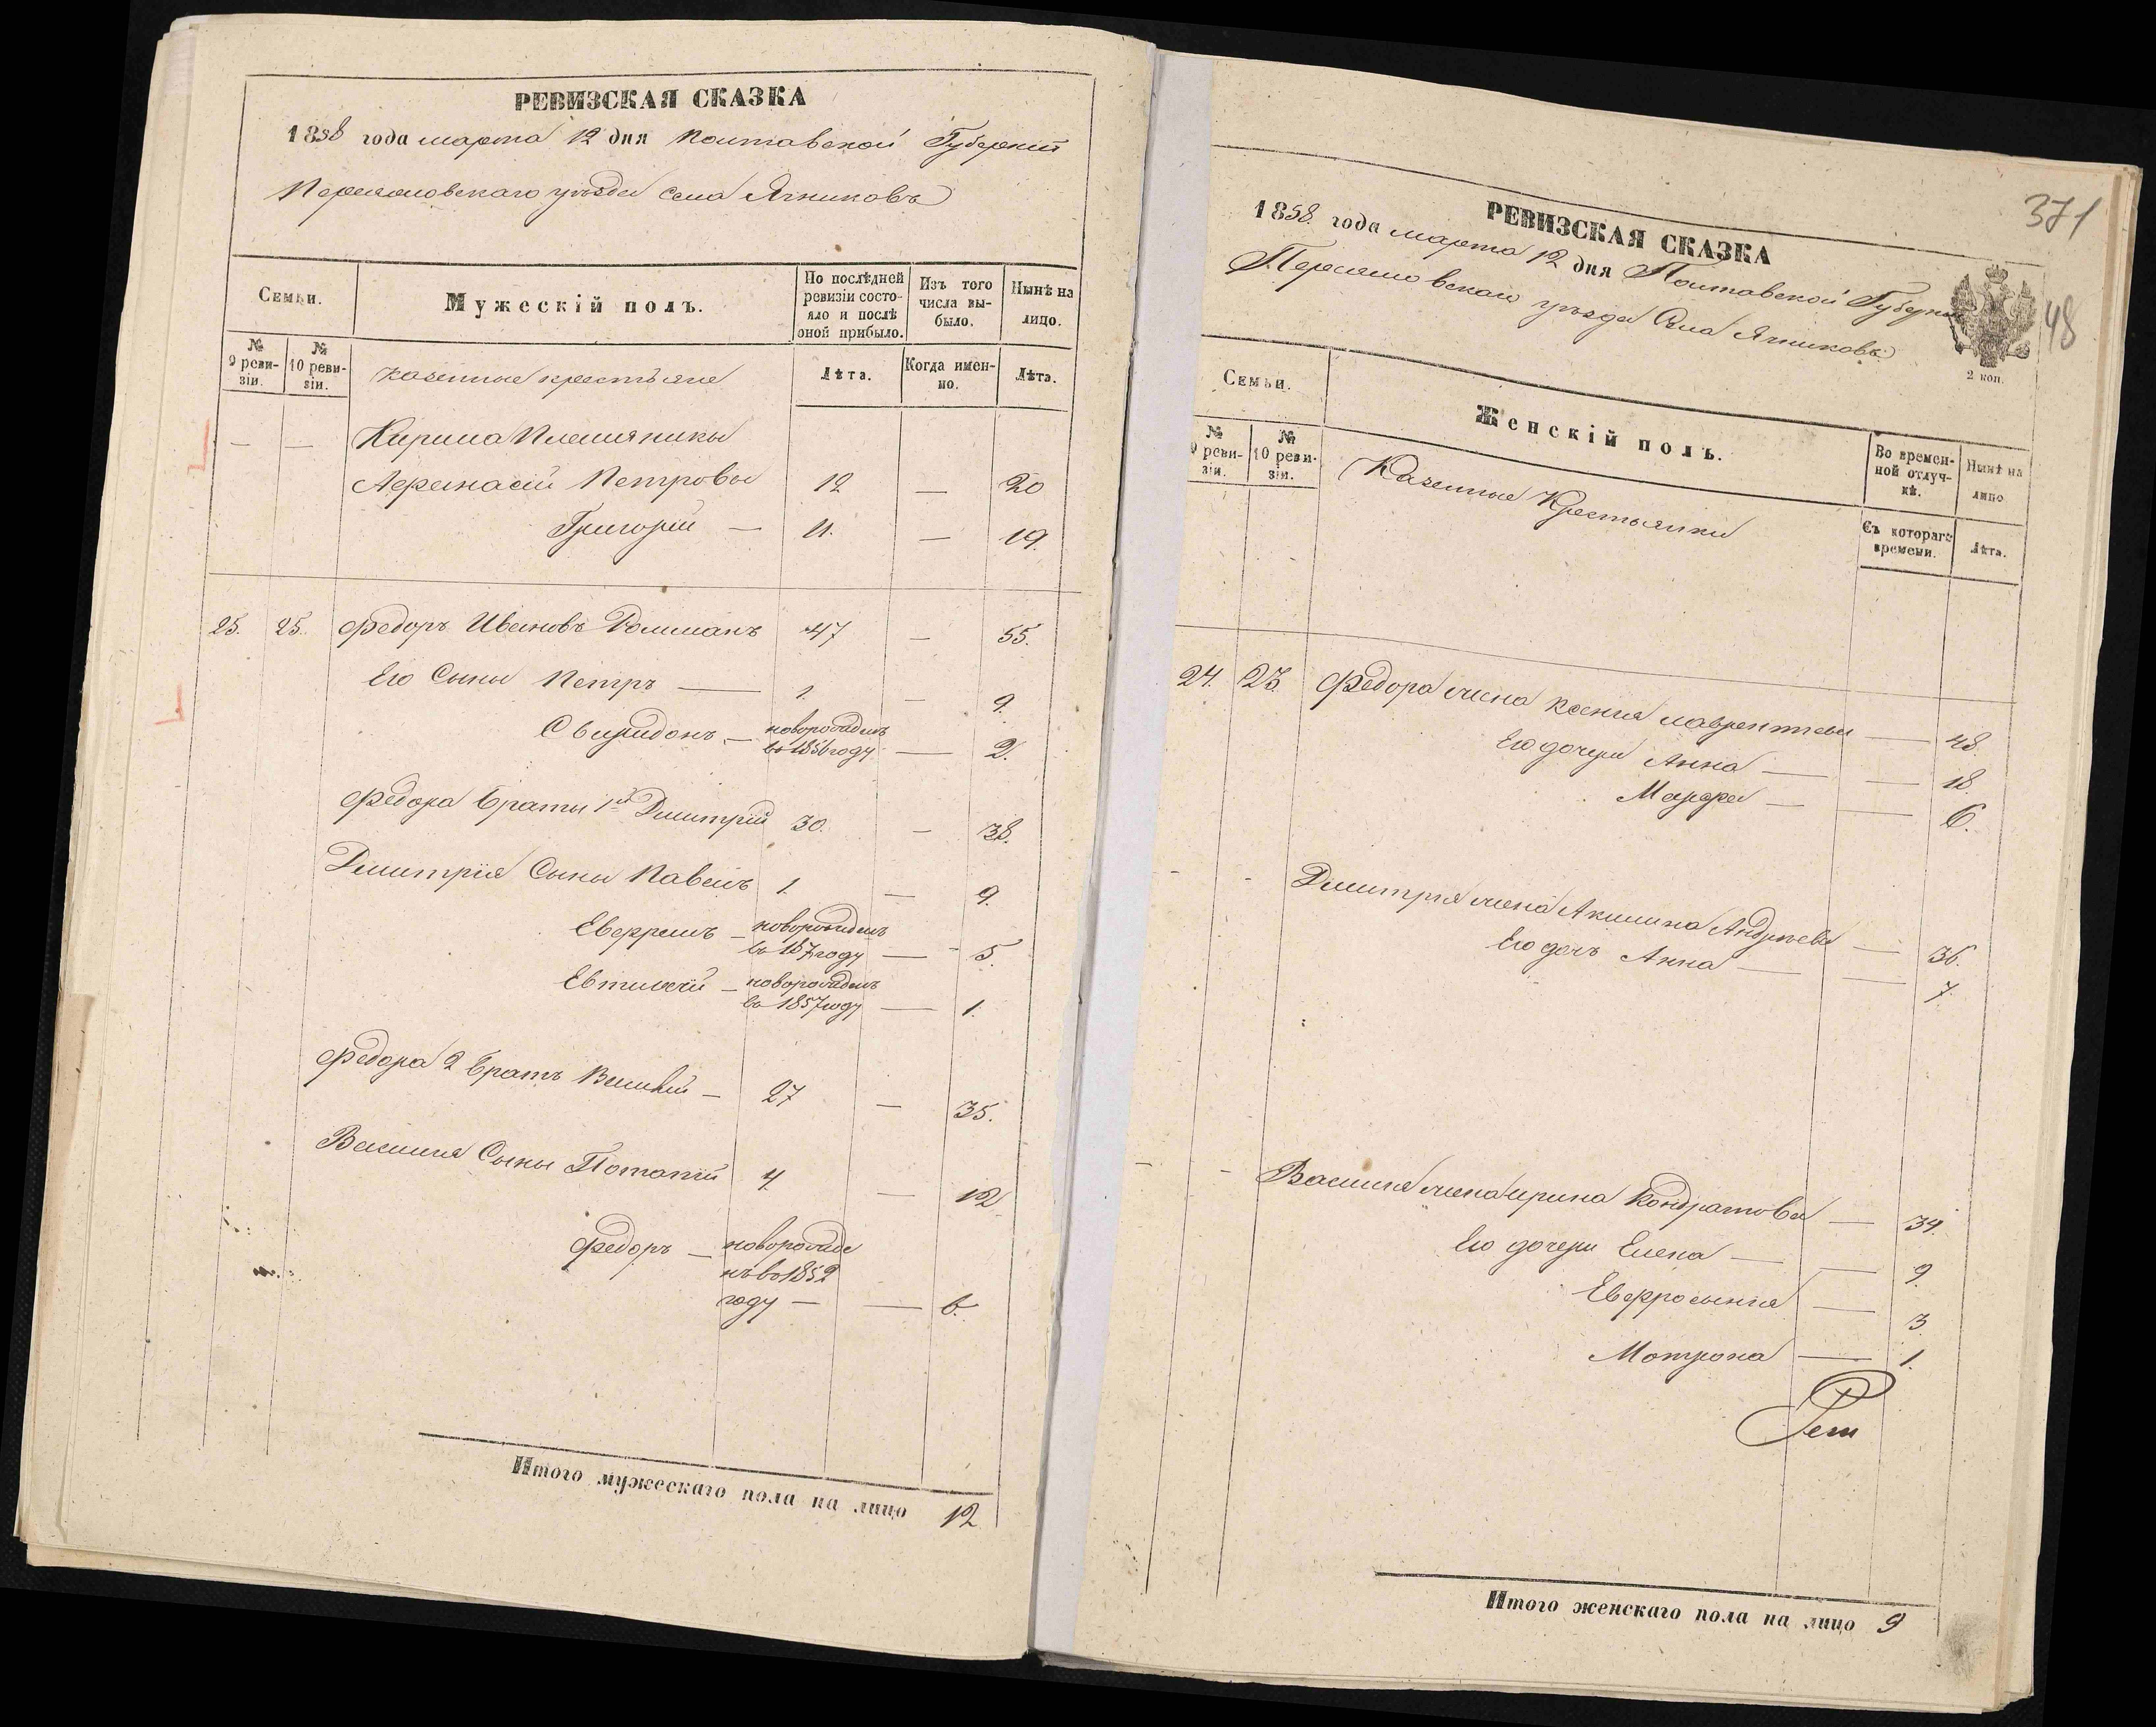 РЕВИЗСКАЯ СКАЗКА
1858 года марта 12 дня Полтавской Губерніи
уезда села Ячниковъ
Семьи.
Мужескій полъ.
По послѣдней ревизіи состояло и послѣ оной прибыло.
Изъ того числа выбыло.
Нынѣ на лицо.
№ 9 ревизіи.
№ 10 ревизіи.
казенные крестьяне
Лѣта.
Когда именно.
Лѣта.
— — Кирила Племянники
Афанасій Петровы 12 — 20
Григорій — 11. — 19.
25. 25. Федоръ Ивановъ 47 — 55.
Его Сыны Петръ — 1. — 9.
Свиридонъ — новорожденъ
въ 1856 году — 2.
Федора браты 1й Дмитрій 30. — 38.
Дмитрія Сыны Павелъ 1. — 9.
Евфремъ — новорожденъ
году — 5.
Евтихій — новорожденъ
въ 1857 году — 1.
Федора 2 братъ Василій — 27 — 35.
Василія Сыны Потапій 4 — 12
Федоръ — новорожде
нъ въ 1852
году — — 6.
Итого мужескаго пола на лицо 12
371
48
РЕВИЗСКАЯ СКАЗКА
1858. года марта 12 дня Полтавской Губерніи
уезда Села Ячниковъ
2 коп.
Семьи.
Женскій полъ.
Во временной отлучкѣ.
Нынѣ на лицо
№ 9 ревизіи.
№ 10 ревизіи.
Казенные Крестьянки
Съ котораго времени.
Лѣта.
24. 25. Федора жена Ксенія Лаврентьева — 48.
Его дочери Анна — — 18.
Марфа — — 6.
- - Дмитрія жена Акилина Андреева — 36.
Его дочь Анна — — 7.
- - Василія жена Ирина Кондратова — 34.
Его дочери Елена — — 9.
Евфросинія — 3
Мотрона — 1.
Итого женскаго пола на лицо 9